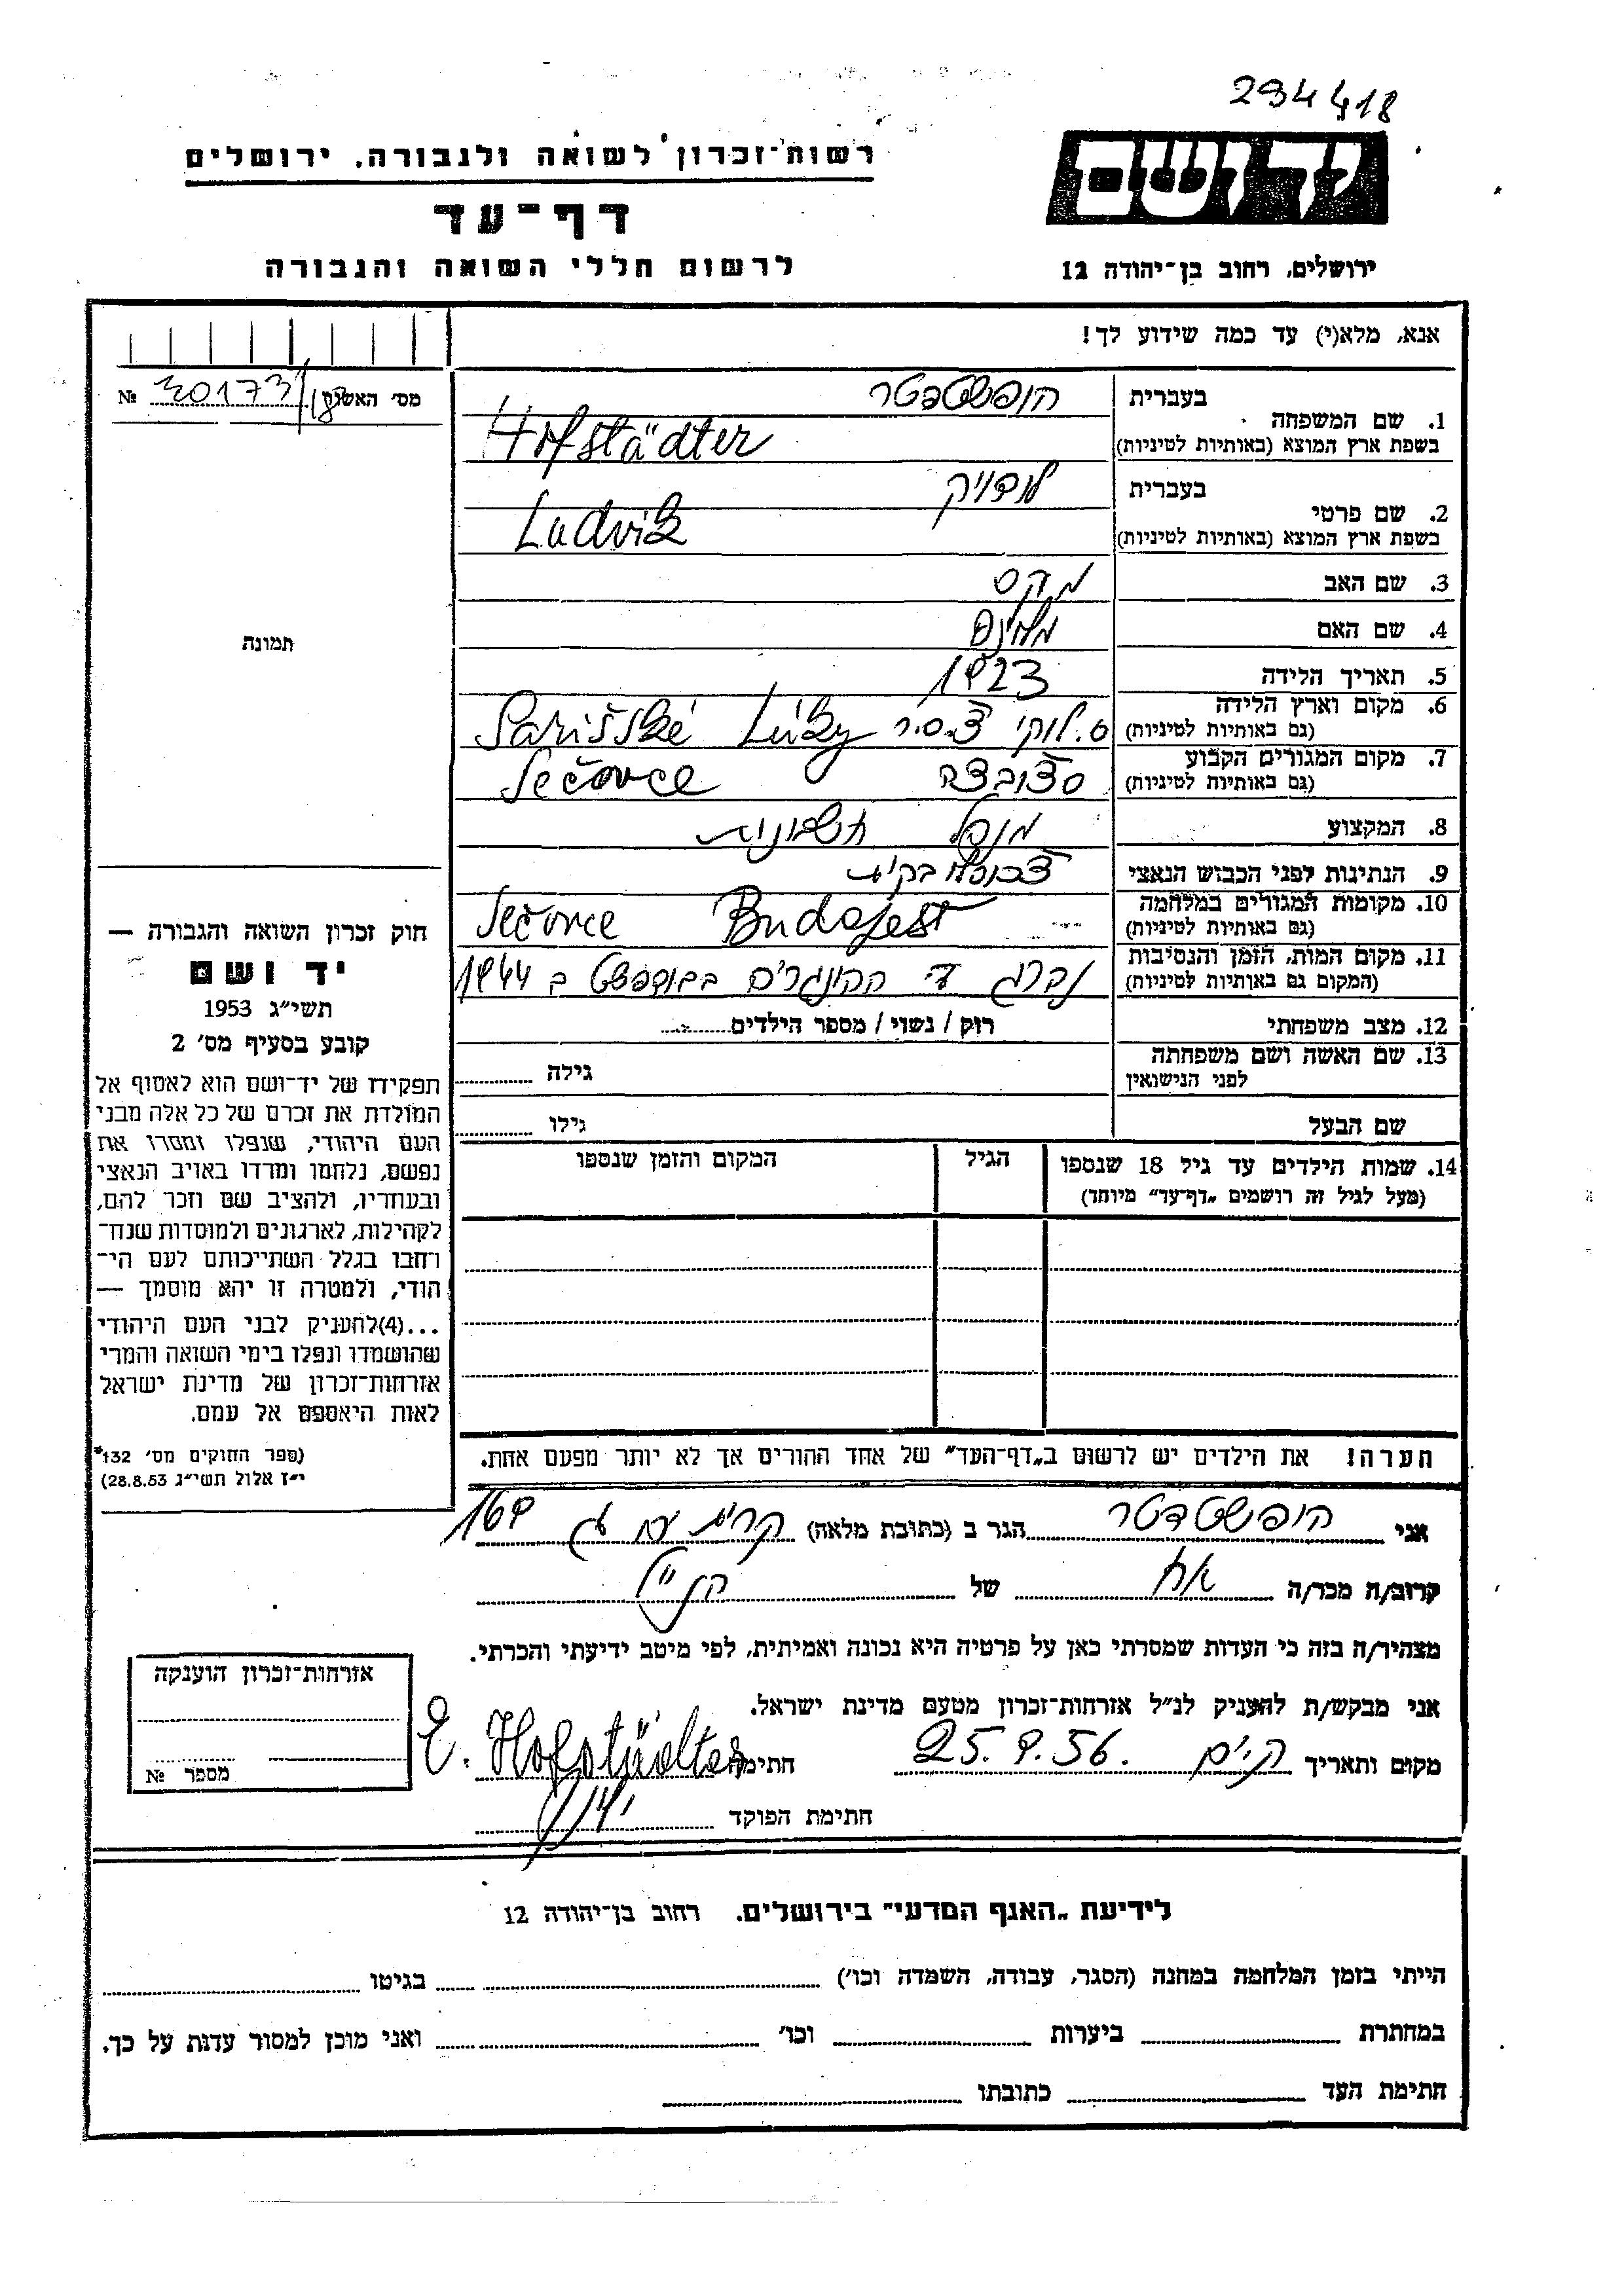 294418
רשות־זכרון לשואה ולגבורה, ירושלים
יד ושם
דף־עד
לרשום חללי השואה והגבורה
ירושלים, רחוב בן־יהודה 12
אנא, מלא(י) עד כמה שידוע לך!
מס׳ האשרה 30173/187 №
1. שם המשפחה בעברית הופשטטר
בשפת ארץ המוצא (באותיות לטיניות) Hofstädter
2. שם פרטי בעברית לודויק
בשפת ארץ המוצא (באותיות לטיניות) Ludvik
3. שם האב מקס
4. שם האם
5. תאריך הלידה 1923
6. מקום וארץ הלידה (גם באותיות לטיניות) ס. לוקי צ.ס.ר Sarišské Lúky
7. מקום המגורים הקבוע (גם באותיות לטיניות) סצובצה Sečovce
8. המקצוע מנהל חשבונות
9. הנתינות לפני הכבוש הנאצי צכוסלובקית
10. מקומות המגורים במלחמה (גם באותיות לטיניות) Budapest Sečovce
11. מקום המות, הזמן והנסיבות (המקום גם באותיות לטיניות) נהרג ע״י ההונגרים בבודפשט ב 1944
12. מצב משפחתי רוק / נשוי / מספר הילדים
13. שם האשה ושם משפחתה לפני הנישואין גילה
שם הבעל גילו
14. שמות הילדים עד גיל 18 שנספו הגיל המקום והזמן שנספו
(מעל לגיל זה רושמים „דף־עד״ מיוחד)
תמונה
חוק זכרון השואה והגבורה —
יד ושם
תשי״ג 1953
קובע בסעיף מס׳ 2
תפקידו של יד־ושם הוא לאסוף אל
המולדת את זכרם של כל אלה מבני
העם היהודי, שנפלו ומסרו את
נפשם, נלחמו ומרדו באויב הנאצי
ובעוזריו, ולהציב שם וזכר להם,
לקהילות, לארגונים ולמוסדות שנח־
רחבו בגלל השתייכותם לעם הי־
הודי, ולמטרה זו יהא מוסמך —
...(4)להעניק לבני העם היהודי
שהושמדו ונפלו בימי השואה והמרי
אזרחות־זכרון של מדינת ישראל
לאות היאספם אל עמם.
(ספר החוקים מס׳ 132
י״ז אלול תשי״ג 28.8.53)
הערה! את הילדים יש לרשום ב„דף־העד״ של אחד ההורים אך לא יותר מפעם אחת.
אני הופשטדטר הגר ב (כתובת מלאה) קרית ים ג 169
קרוב/ה מכר/ה אח של הנ״ל
מצהיר/ה בזה כי העדות שמסרתי כאן על פרטיה היא נכונה ואמיתית, לפי מיטב ידיעתי והכרתי.
אני מבקש/ת להעניק לנ״ל אזרחות־זכרון מטעם מדינת ישראל.
מקום ותאריך ק.ים 25.9.56. חתימה E. Hofstädter
חתימת הפוקד
אזרחות־זכרון הוענקה
מספר №
לידיעת „האגף המדעי״ בירושלים. רחוב בן־יהודה 12
הייתי בזמן המלחמה במחנה (הסגר, עבודה, השמדה וכו׳) בגיטו
במחתרת ביערות וכו׳ ואני מוכן למסור עדות על כך.
חתימת העד כתובתו